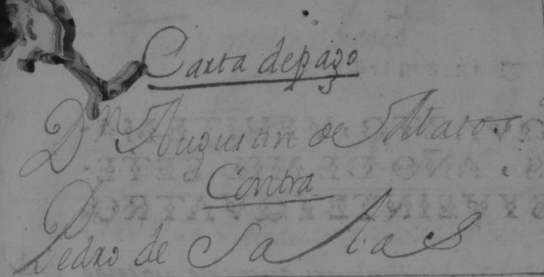 Carta depago
Dn Augustin de Matos
Contra
Pedro de Salas